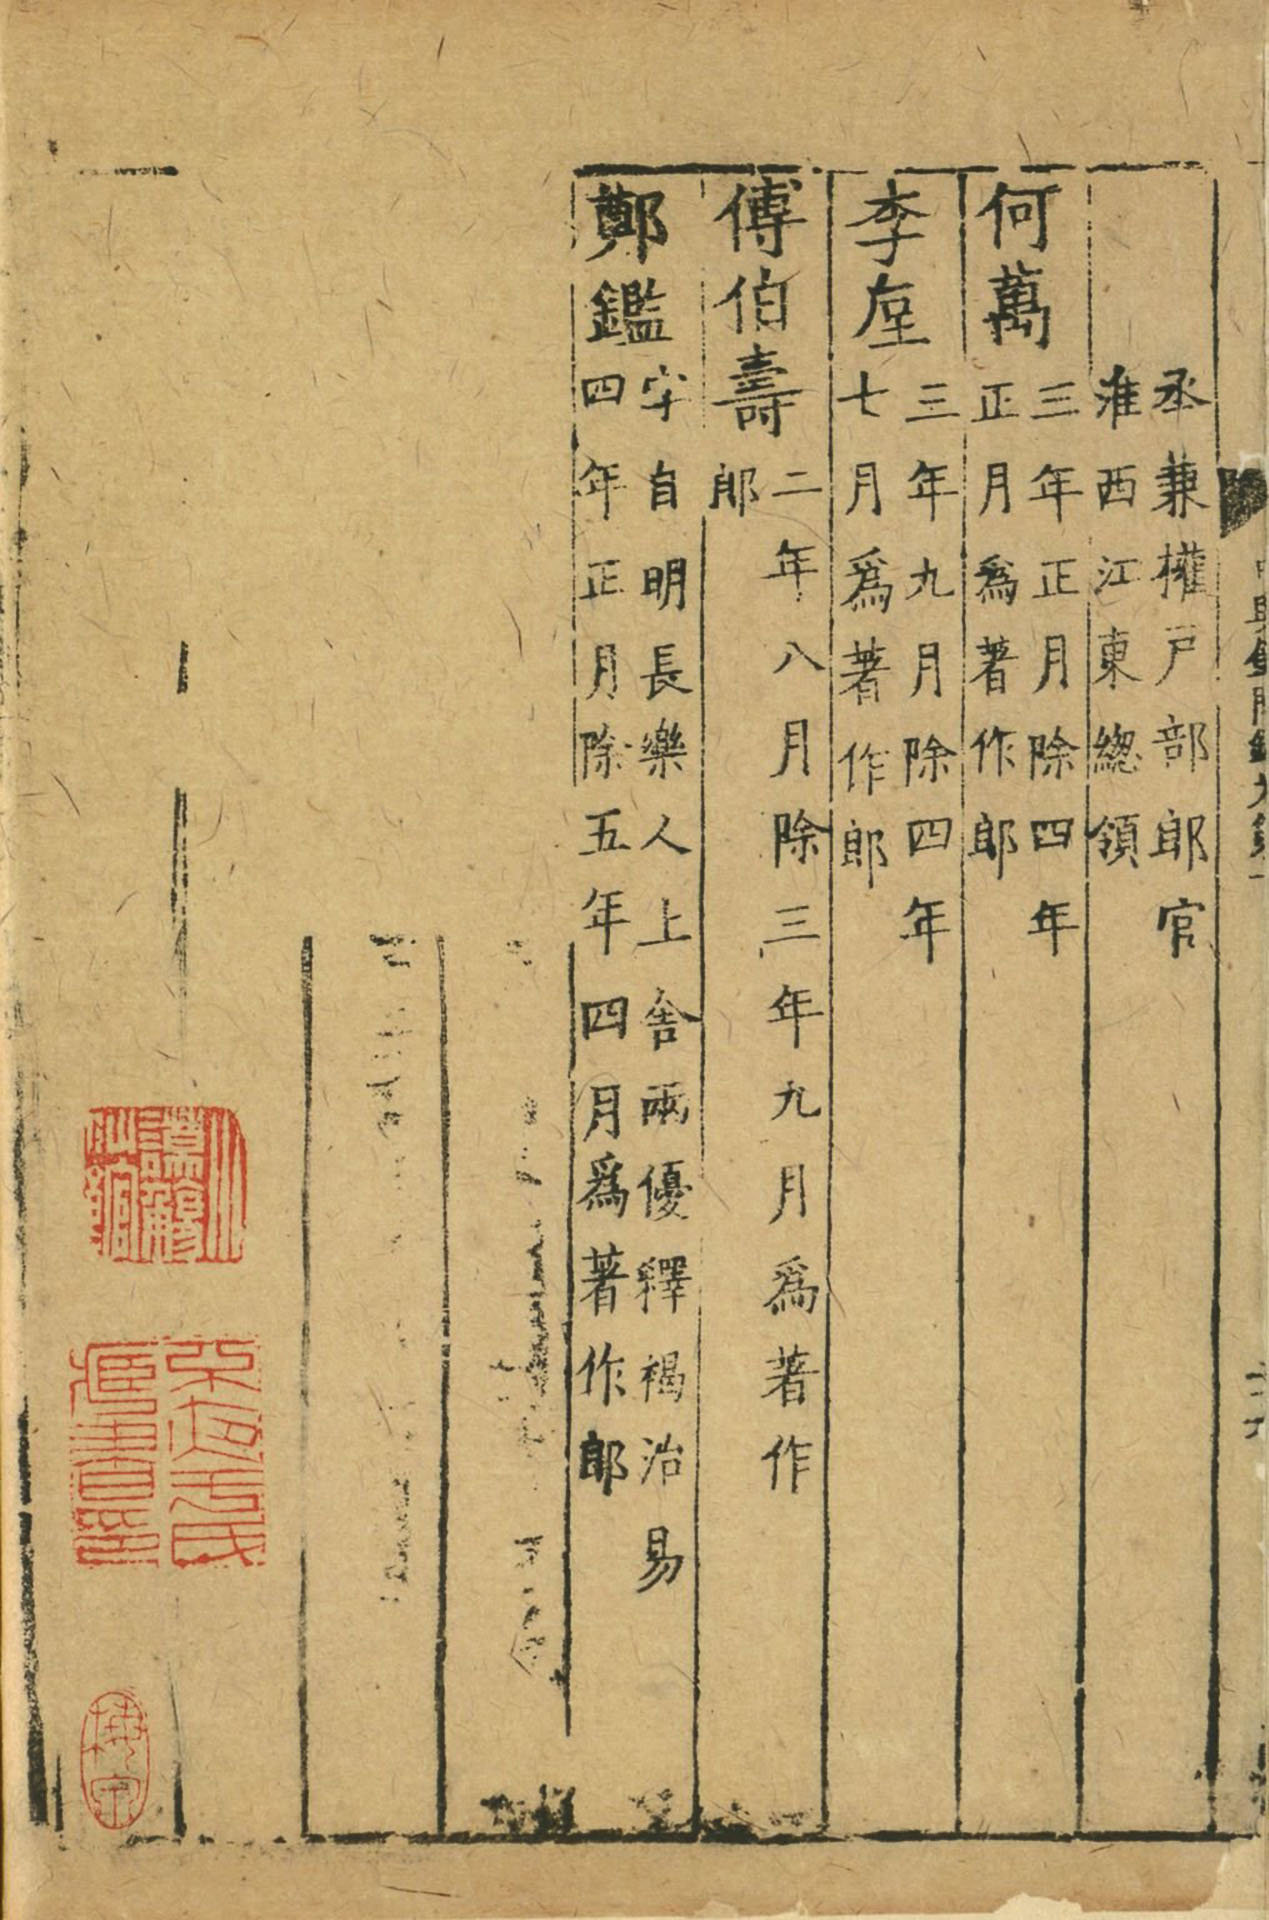 丞兼權戸部郎官
淮西江東總領
何萬
三年正月除四年
正月爲著作郎
李垕
三年九月除四年
七月爲著作郎
傅伯壽
二年八月除三年九月爲著作
郎
鄭鑑
字自明長樂人上舍兩優釋褐治易
四年正月除五年四月爲著作郎